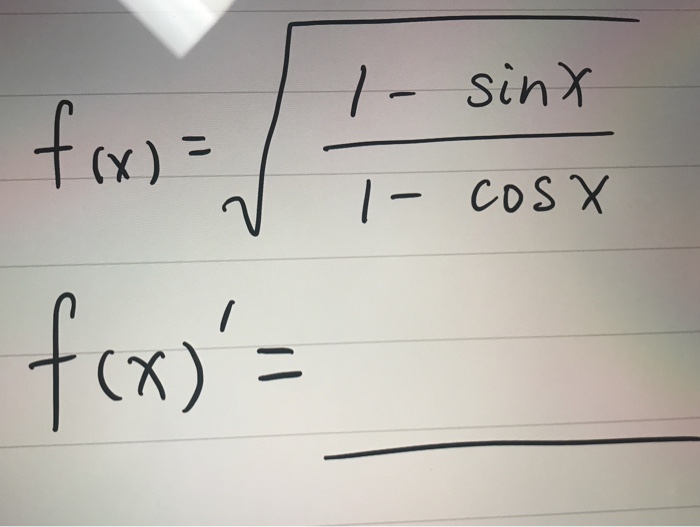 f(x) = √
1 - sinx
1 - cos x
f(x)' =